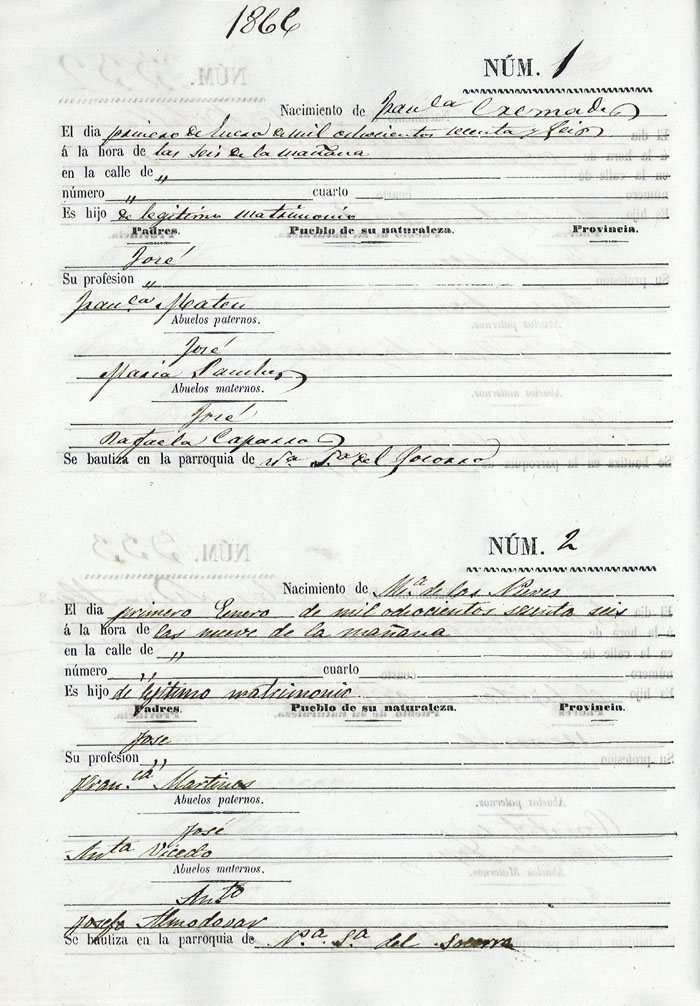 1866
NÚM. 1
Nacimiento de Fran.ca Cremades
El dia primero de Enero de mil ochocientos sesenta y Seis
á la hora de las seis de la mañana
en la calle de "
número " cuarto
Es hijo de legitimo matrimonio
Padres. Pueblo de su naturaleza. Provincia.
José
Su profesion "
Fran.ca Mateu
Abuelos paternos.
José
Maria
Abuelos maternos.
José
Rafaela
Se bautiza en la parroquia de Nª. Sª. del Socorro
NÚM. 2
Nacimiento de Mª. de las Nieves
El dia primero Enero de mil ochocientos sesenta seis
á la hora de las nueve de la mañana
en la calle de "
número " cuarto
Es hijo de legitimo matrimonio
Padres. Pueblo de su naturaleza. Provincia.
Jose
Su profesion "
Fran.ca Martines
Abuelos paternos.
José
Anta Vicedo
Abuelos maternos.
Anto
Josefa Almodovar
Se bautiza en la parroquia de Nª. Sª. del Socorro